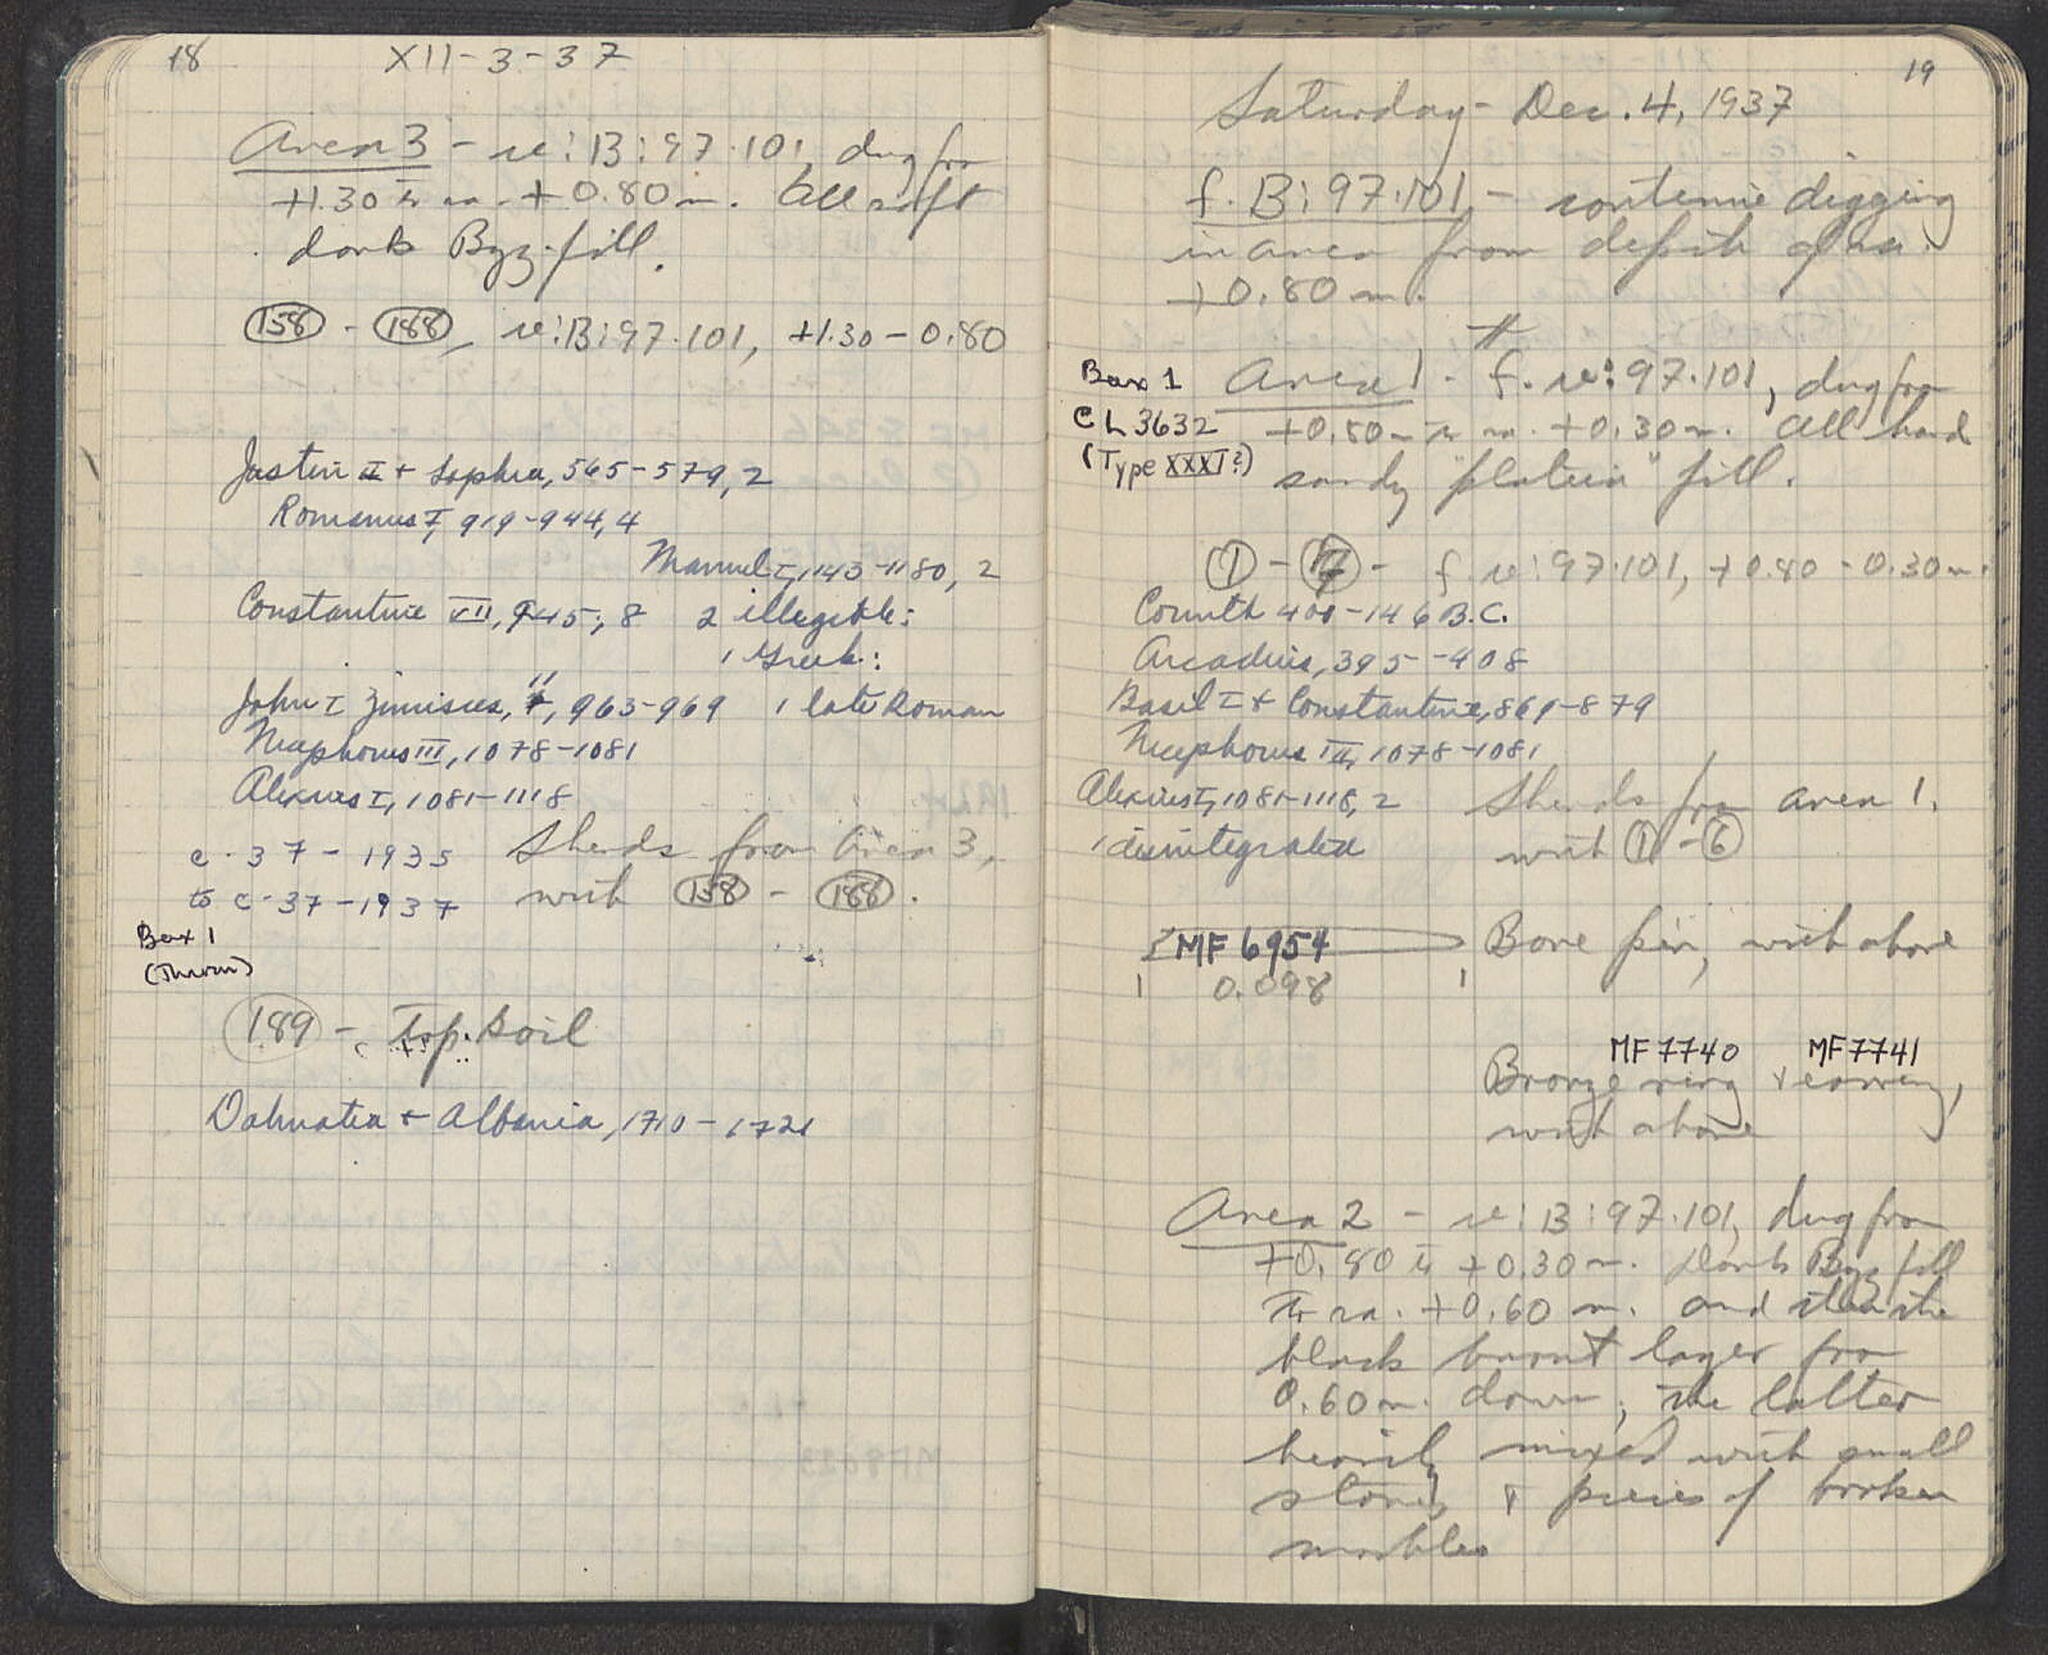 18
XII-3-37
Area 3 - w:B:97.101, dug from
+1.30 to ca. +0.80 m. All soft
dark Byz. fill.
(158) - (188), w:B:97.101, +1.30-0.80
Justin II + Sophia, 565-579, 2
Romanus I, 919-944, 4
Manuel I, 1143-1180, 2
Constantine VII, 945, 8
2 illegible:
1 Greek:
John I Zimisces, 11, 963-969
1 late Roman
Nicephorus III, 1078-1081
Alexius I, 1081-1118
c-37-1935
to c-37-1937
Sherds from Area 3,
with (158) - (188).
Box 1
(Thrown)
(189) - Top Soil
Dalmatia + Albania, 1710-1721
19
Saturday - Dec. 4, 1937
f. B:97.101 - continue digging
in area from depth of ca.
+0.80 m.
Box 1
CL 3632
(Type XXXI?)
Area 1 - f. w:97.101, dug from
+0.80 m to ca. +0.30 m. All hard
sandy "plateia" fill.
(1) - (7) - f. w:97.101, +0.80-0.30 m.
Corinth 400-146 B.C.
Arcadius, 395-408
Basil I + Constantine, 869-879
Nicephorus III, 1078-1081
Alexius I, 1081-1118, 2
1 disintegrated
Sherds from area 1.
with (1) - (6)
MF 6954
0.098
Bone pin, with above
MF 7740 MF 7741
Bronze ring & earring,
with above
Area 2 - w:B:97.101, dug from
+0.80 to +0.30 m. Dark Byz fill
to ca. +0.60 m. and then the
black burnt layer from
0.60 m. down; the latter
heavily mixed with small
stones & pieces of broken
marbles